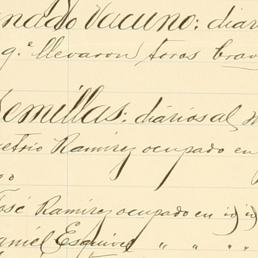 nado Vacuno: diari
q.e llevaron toros brav
Semillas: diários al
etrio Ramirez ocupado en
José Ramirez ocupado en id id
aniel Esquivel " " "